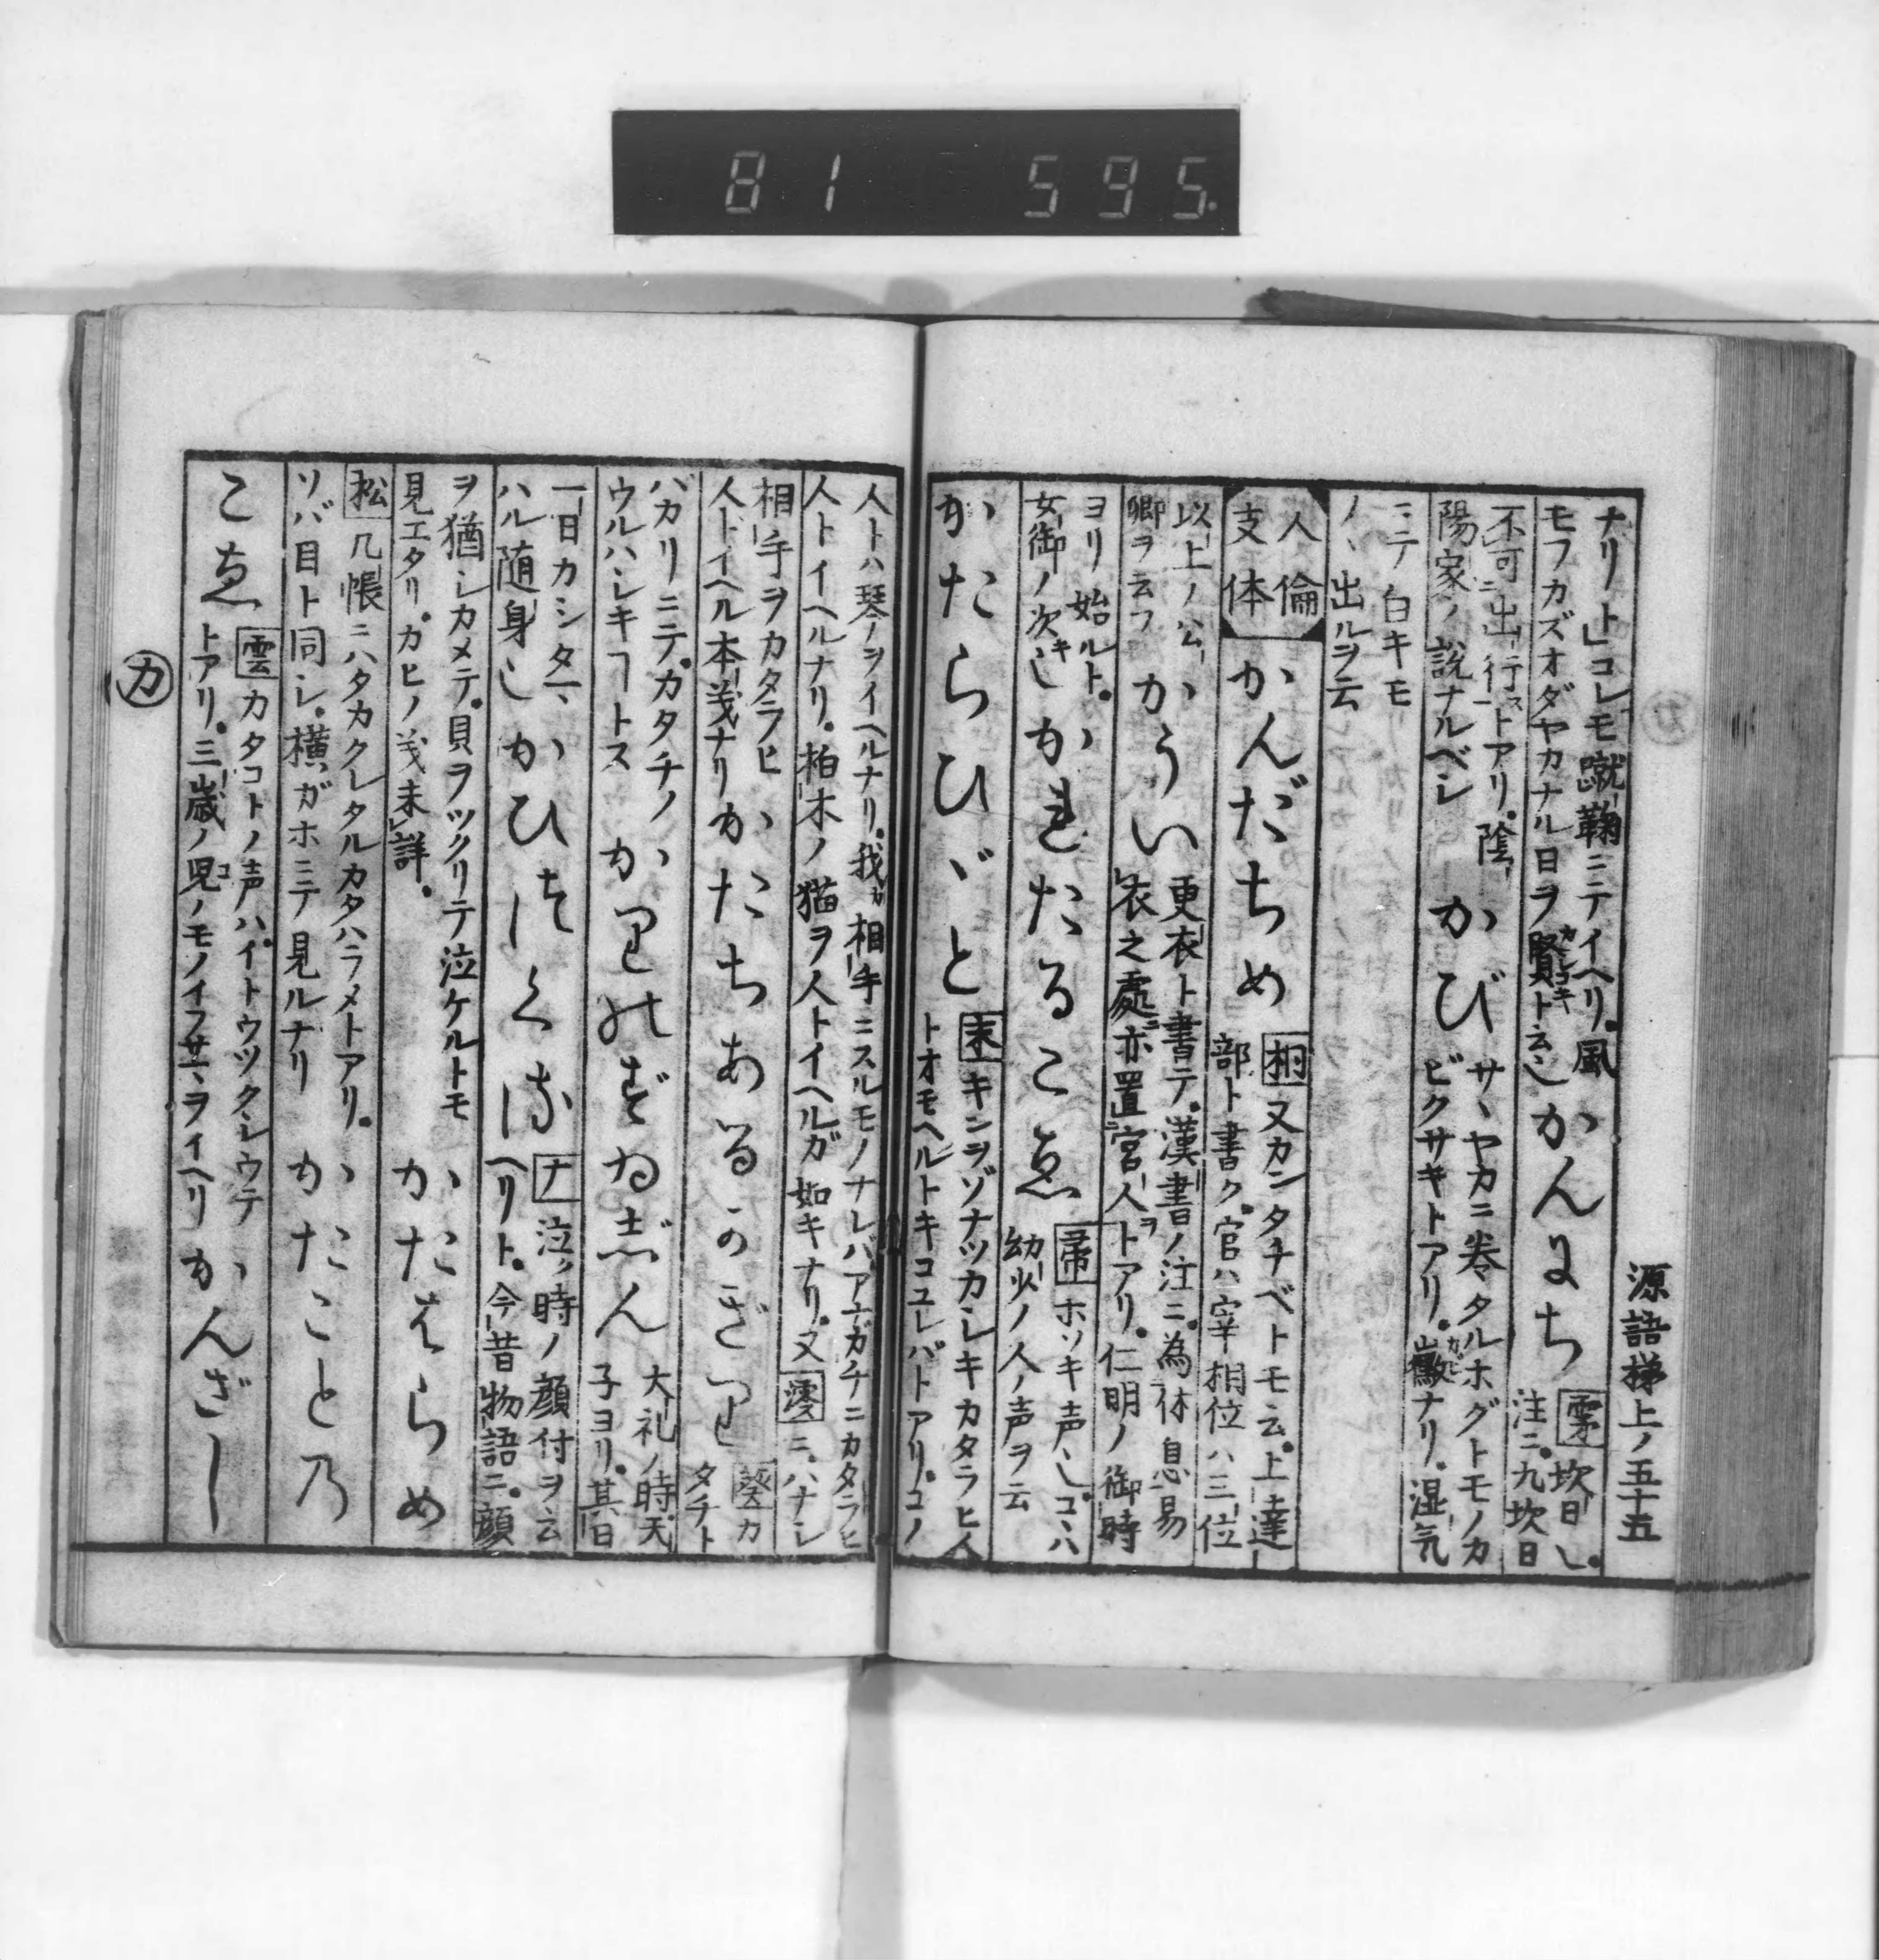 81 595.
源語梯上ノ五十五
ナリト」コレモ蹴鞠ニテイヘリ。風
モフカズオダヤカナル日ヲ賢カシコキト云
かんにち
坎日也。
注ニ。九坎日
不可ニ出行一ストアリ。陰
陽家ノ説ナルベシ
かび
サヽヤカニ巻タルホグトモノカ
ビクサキトアリ。黴カビナリ。湿気
ニテ白キモ
ノヽ出ルヲ云
人倫
支体
かんだちめ
桐又カンタチベトモ云。上達
部ト書ク。官ハ宰相位ハ三位
以上ノ公
卿ヲ云フ
かうい
更衣ト書テ。漢書ノ注ニ。為休息易
衣之處亦置宮人ヲトアリ。仁明ノ御時
ヨリ始ルト。
女御ノ次ギ也
かれたるこゑ
帚ホソキ声也。コヽハ
幼少ノ人ノ声ヲ云
かたらひゞと
末キンヲゾナツカシキカタラヒ人
トオモヘルトキコユレバトアリ。コノ
人トハ琴ヲイヘルナリ。我ガ相手ニスルモノナレバ。アナガチニカタラヒ
人トイヘルナリ。柏木ノ猫ヲ人トイヘルガ如キナリ。又澪ニ。ハナシ
相手ヲカタラヒ
人トイヘル本義ナリ
かたちあるかぎり
葵カ
タチト
バカリニテ。カタチノ
ウルハシキヿトス
かりのずゐじん
大礼ノ時天
子ヨリ。其日
一日カシタマ
ハル随身也
かひつくる
ナ泣ク時ノ顔付ヲ云
ヘリト。今昔物語ニ。顔
ヲ猶シカメテ。貝ヲツクリテ泣ケルトモ
見エタリ。カヒノ義未詳。
かたはらめ
松几帳ニハタカクレタルカタハラメトアリ。
ソバ目ト同シ。横ガホニテ見ルナリ
かたことの
こゑ
雲カタコトノ声ハ。イトウツクシウテ
トアリ。三歳ノ児コノモノイフサマヲイヘリ
かんざし
カ